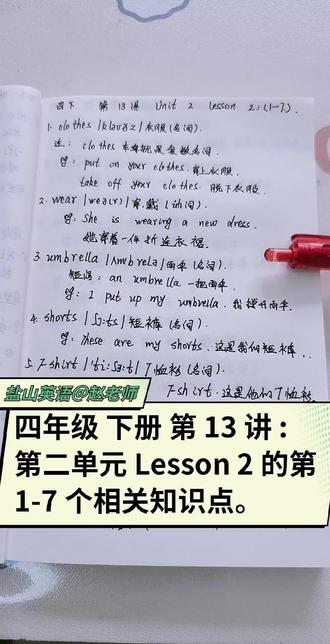 四下 第13讲 Unit 2 Lesson 2:(1-7).
1. clothes |kləʊðz| 衣服(名词).
注: clothes 本身就是复数名词.
eg: put on your clothes. 穿上衣服.
take off your clothes. 脱下衣服.
2. wear |weə(r)| 穿、戴(动词).
eg: She is wearing a new dress.
她穿着一件新连衣裙.
3. umbrella |ʌmˈbrelə| 雨伞(名词).
短语: an umbrella 一把雨伞.
eg: I put up my umbrella. 我撑开雨伞.
4. shorts |ʃɔ:ts| 短裤(名词).
eg: These are my shorts. 这是我的短裤.
5. T-shirt |ˈti:ʃɜ:t| T恤衫(名词).
T-shirt. 这是他们T恤衫.
盐山英语@赵老师
四年级 下册 第 13 讲：
第二单元 Lesson 2 的第
1-7 个相关知识点。